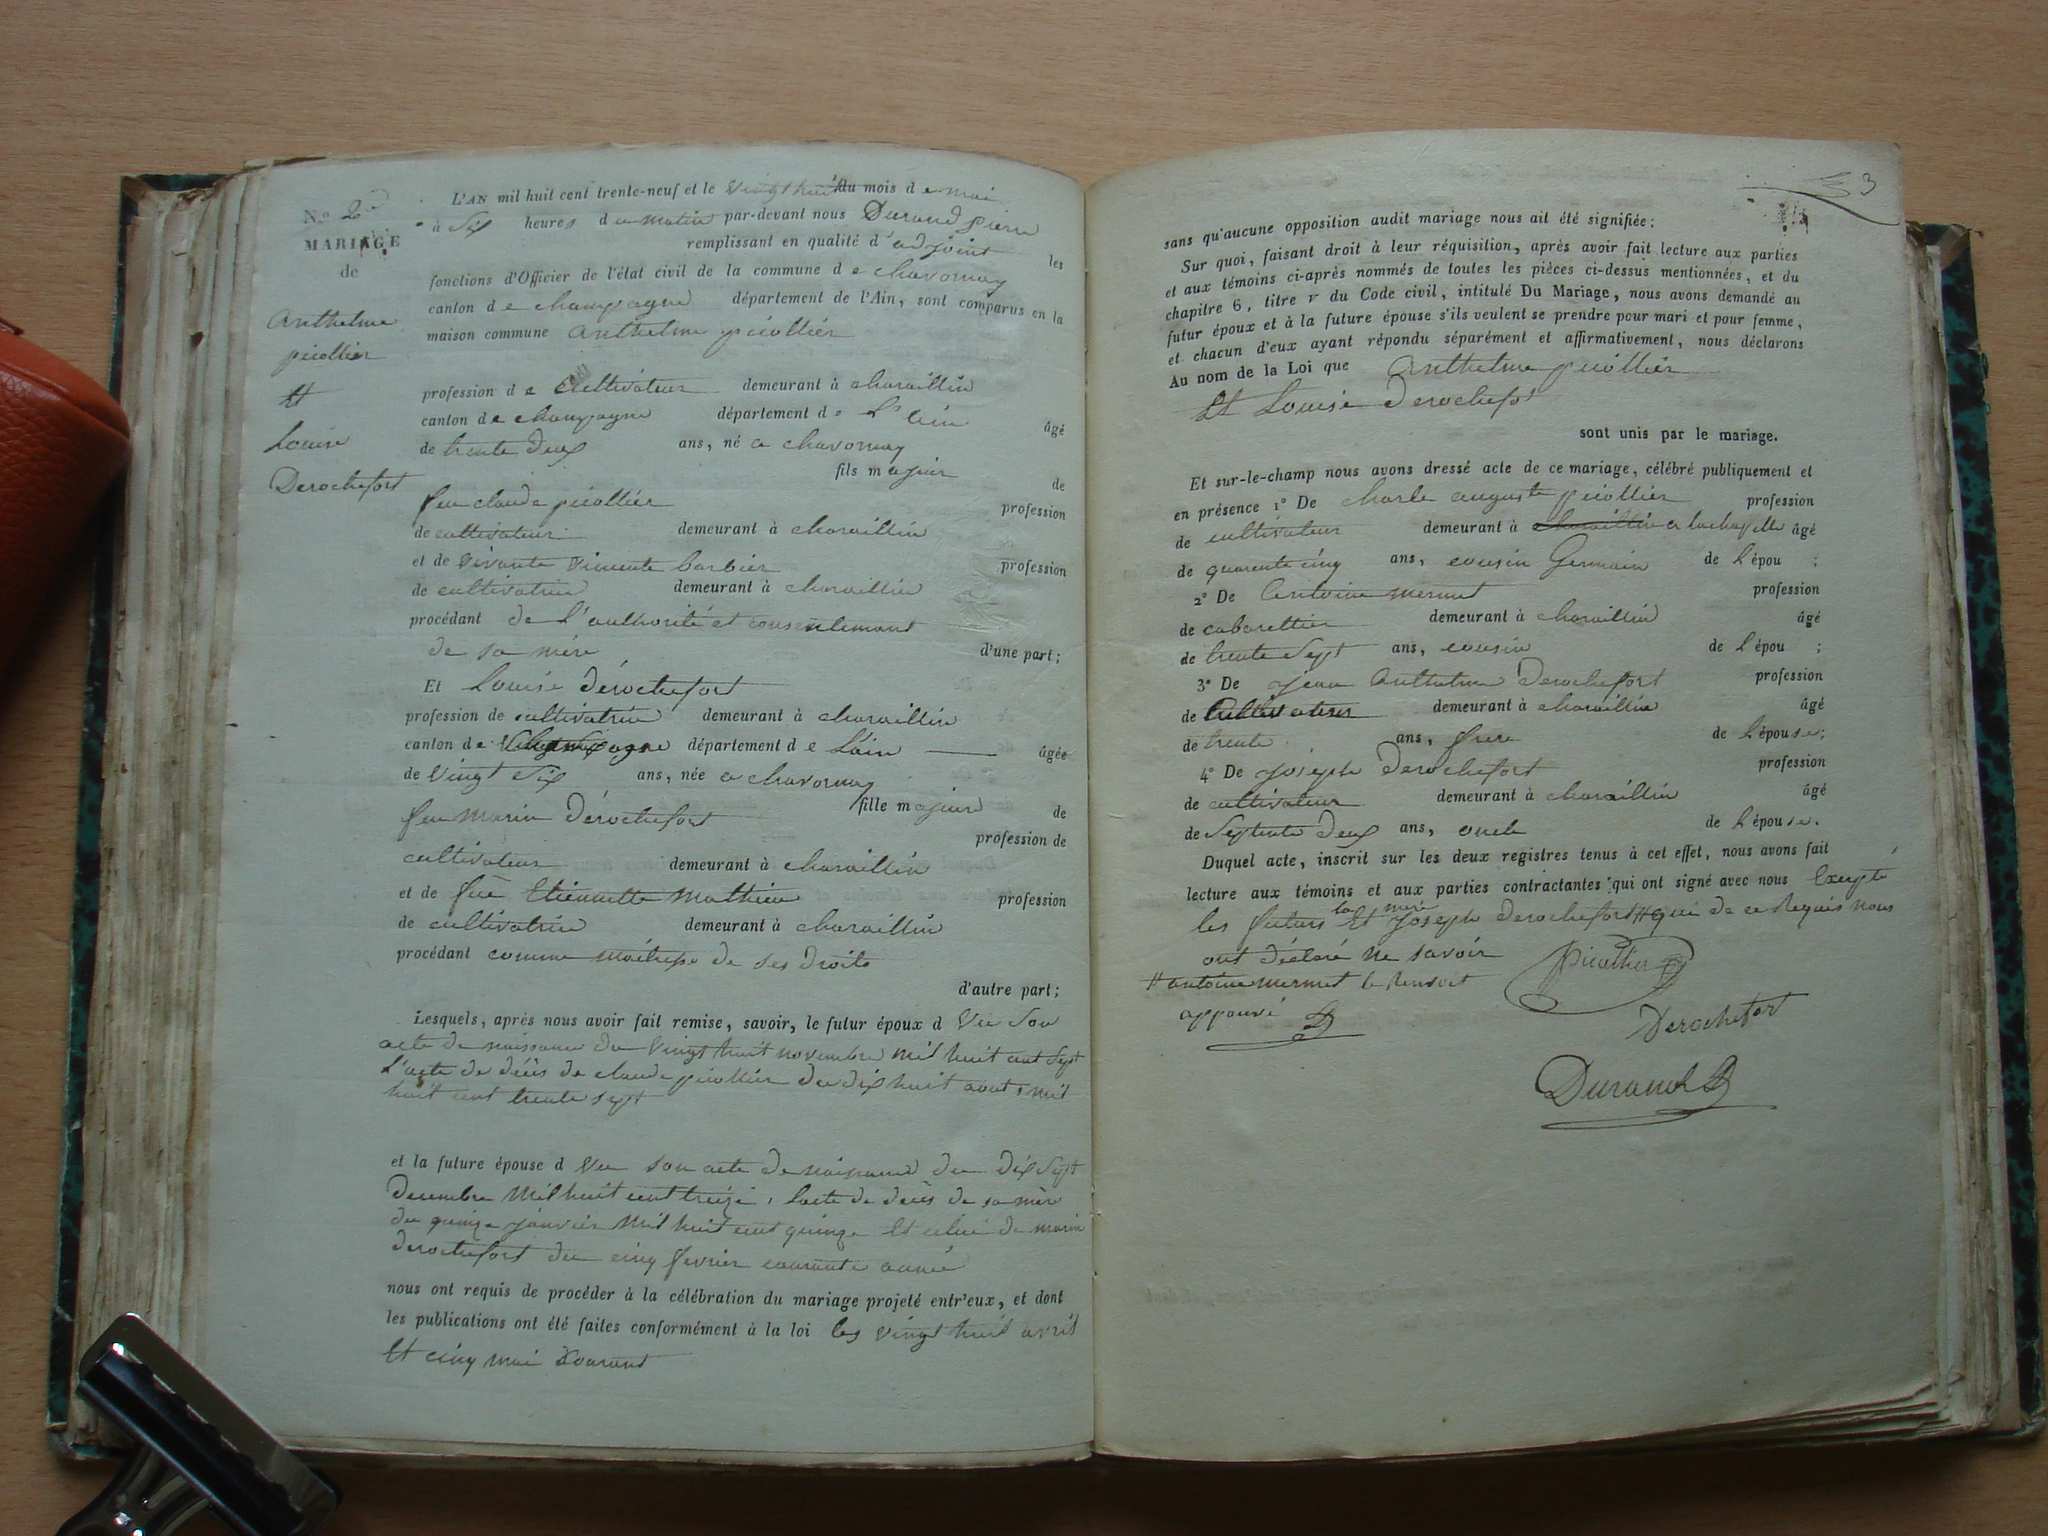 N.o 2e
MARIAGE
de
Anthelme
picollier
Et
Louise
Derochefort
L'AN mil huit cent trente-neuf et le vingt huit du mois de mai
à six heures du matin par-devant nous Durand pierre
remplissant en qualité d'adjoint les
fonctions d'Officier de l'état civil de la commune de chavornay
canton de champagne département de l'Ain, sont comparus en la
maison commune Anthelme picollier
profession de cultivateur demeurant à charaillin
canton de champagne département de L'ain âgé
de trente deux ans, né a chavornay
fils majeur de
feu claude picollier profession
de cultivateur demeurant à charaillin
et de vivante vincente barbier profession
de cultivatrice demeurant à charaillin
procédant de l'authorité et consentement
de sa mère d'une part;
Et Louise dérochefort
profession de cultivatrice demeurant à charaillin
canton de champagne département de L'ain âgée
de vingt six ans, née a chavornay
fille majeure de
feu marin dérochefort profession de
cultivateur demeurant à charaillin
et de fûe Etiennette Mathieu profession
de cultivatrice demeurant à charaillin
procédant comme maitresse de ses droits
d'autre part;
Lesquels, après nous avoir fait remise, savoir, le futur époux d Vu son
acte de naissance du vingt huit novembre mil huit cent sept
L'acte de décès de claude picollier du dix huit aout, mil
huit cent trente sept
et la future épouse d Vu son acte de naissance du dix sept
decembre mil huit cent treize, lacte de décès de sa mère
du quinze janvier mil huit cent quinze Et celui de marin
derochefort du cinq fevrier courante année
nous ont requis de procéder à la célébration du mariage projeté entr'eux, et dont
les publications ont été faites conformément à la loi les vingt huit avril
Et cinq mai courant
3
sans qu'aucune opposition audit mariage nous ait été signifiée:
Sur quoi, faisant droit à leur réquisition, après avoir fait lecture aux parties
et aux témoins ci-après nommés de toutes les pièces ci-dessus mentionnées, et du
chapitre 6, titre v du Code civil, intitulé Du Mariage, nous avons demandé au
futur époux et à la future épouse s'ils veulent se prendre pour mari et pour femme,
et chacun d'eux ayant répondu séparément et affirmativement, nous déclarons
Au nom de la Loi que Anthelme picollier
Et Louise Derochefort
sont unis par le mariage.
Et sur-le-champ nous avons dressé acte de ce mariage, célébré publiquement et
en présence 1o De charle auguste picollier profession
de cultivateur demeurant à charaillin a lachapelle âgé
de quarente cinq ans, cousin Germain de L'épou ;
2o De Antoine mermet profession
de cabarettier demeurant à charaillin âgé
de trente sept ans, cousin de L'épou ;
3o De jean Anthelme Derochefort profession
de Cultivateur demeurant à charaillin âgé
de trente ans, frere de L'épouse;
4o De joseph Derochefort profession
de cultivateur demeurant à charaillin âgé
de septente deux ans, oncle de L'épouse.
Duquel acte, inscrit sur les deux registres tenus à cet effet, nous avons fait
lecture aux témoins et aux parties contractantes qui ont signé avec nous Exepté
les futurs la mère Et joseph derochefort # qui de ce Requis nous
ont déclaré ne savoir Picollier
# antoine mermet le Renvoit
appouvé D
Derochefort
Durand